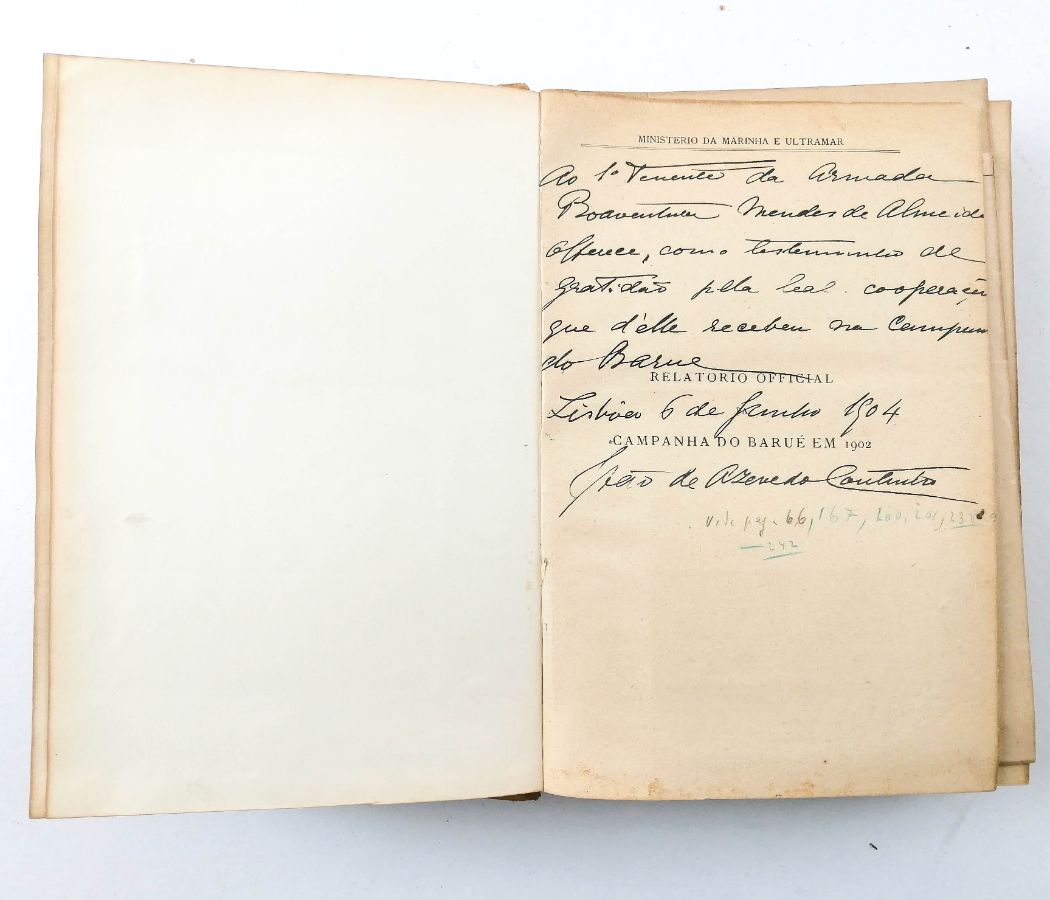 MINISTERIO DA MARINHA E ULTRAMAR
Ao 1º Tenente da Armada
Boaventura Mendes de Almeida
Offerece, como testemunho de
gratidão pela leal cooperação
que d'elle recebeu na Campanha
do Barue
RELATORIO OFFICIAL
Lisboa 6 de Junho 1904
CAMPANHA DO BARUÉ EM 1902
João de Azevedo Coutinho
Vide pag. 66, 167, 200, 201,
242